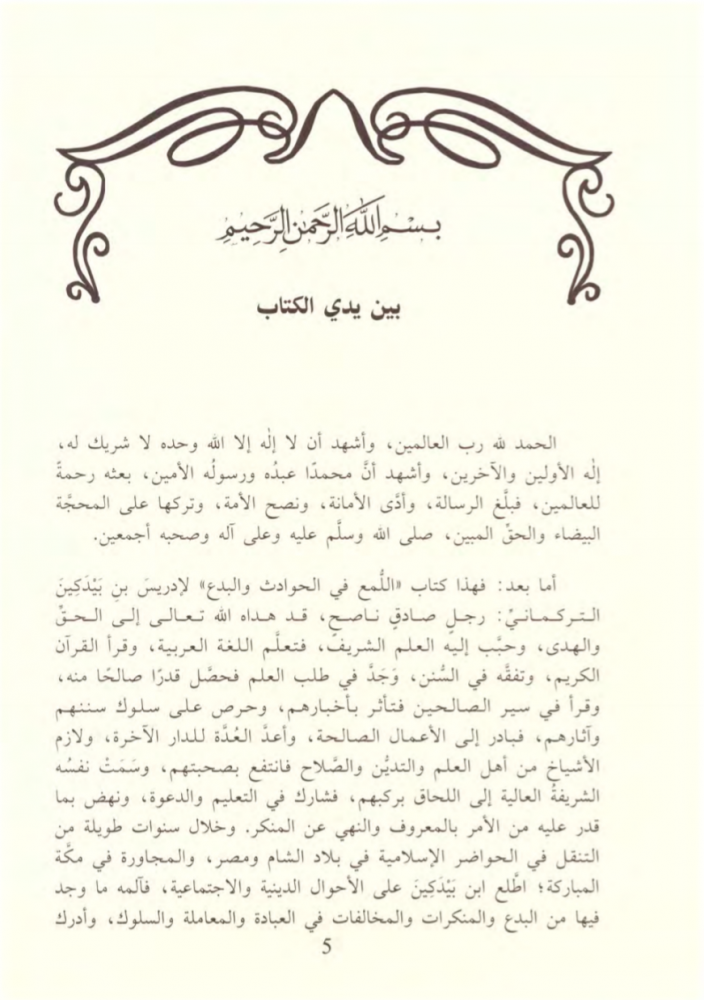 بسم الله الرحمن الرحيم
بين يدي الكتاب
الحمد لله رب العالمين، وأشهد أن لا إلٰه إلا الله وحده لا شريك له،
إلٰه الأولين والآخرين، وأشهد أنَّ محمدًا عبدُه ورسولُه الأمين، بعثه رحمةً
للعالمين، فبلَّغ الرسالة، وأدَّى الأمانة، ونصح الأمة، وتركها على المحجَّة
البيضاء والحقِّ المبين، صلى الله وسلَّم عليه وعلى آله وصحبه أجمعين.
أما بعد: فهذا كتاب «اللُّمع في الحوادث والبدع» لإدريسَ بنِ بَيْدَكِينَ
التركمانيِّ: رجلٍ صادقٍ ناصحٍ، قد هداه الله تعالى إلى الحقِّ
والهدى، وحبَّب إليه العلم الشريف، فتعلَّم اللغة العربية، وقرأ القرآن
الكريم، وتفقَّه في السُّنن، وَجَدَّ في طلب العلم فحصَّل قدرًا صالحًا منه،
وقرأ في سير الصالحين فتأثر بأخبارهم، وحرص على سلوك سننهم
وآثارهم، فبادر إلى الأعمال الصالحة، وأعدَّ العُدَّة للدار الآخرة، ولازم
الأشياخ من أهل العلم والتديُّن والصَّلاح فانتفع بصحبتهم، وسَمَتْ نفسُه
الشريفةُ العالية إلى اللحاق بركبهم، فشارك في التعليم والدعوة، ونهض بما
قدر عليه من الأمر بالمعروف والنهي عن المنكر. وخلال سنوات طويلة من
التنقل في الحواضر الإسلامية في بلاد الشام ومصر، والمجاورة في مكَّة
المباركة؛ اطَّلع ابن بَيْدَكِينَ على الأحوال الدينية والاجتماعية، فآلمه ما وجد
فيها من البدع والمنكرات والمخالفات في العبادة والمعاملة والسلوك، وأدرك
5